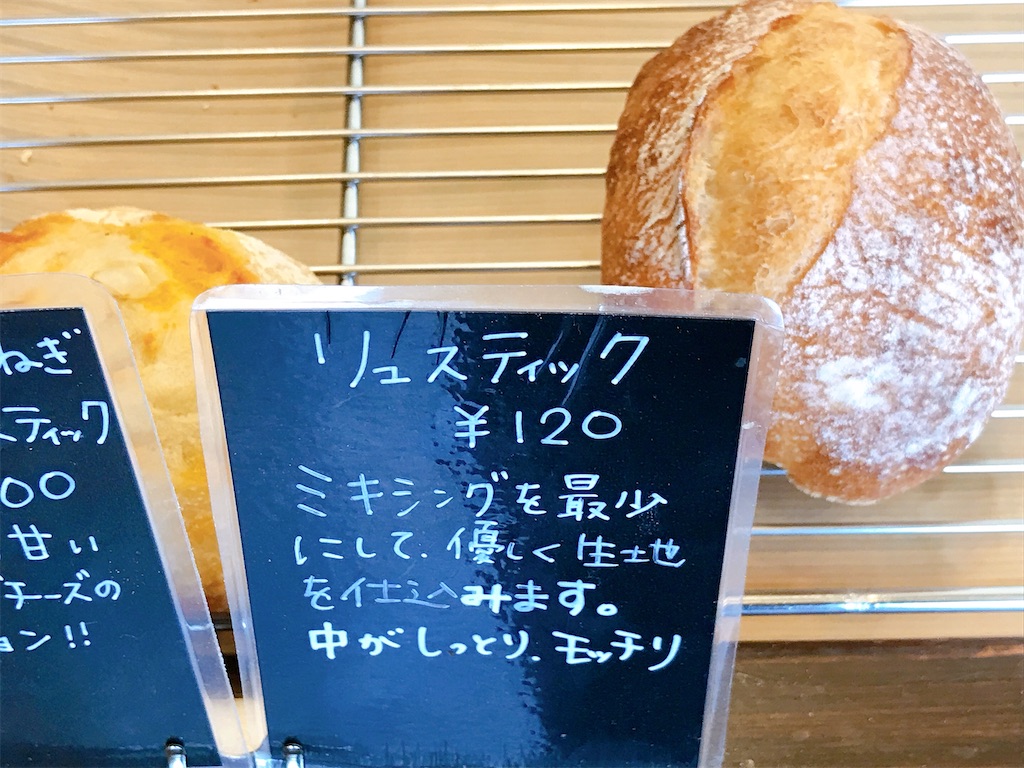 ねぎ
スティック
00
甘い
チーズの
ョン!!
リュスティック
¥120
ミキシングを最少
にして、優しく生土地
を仕込みます。
中がしっとり、モッチリ